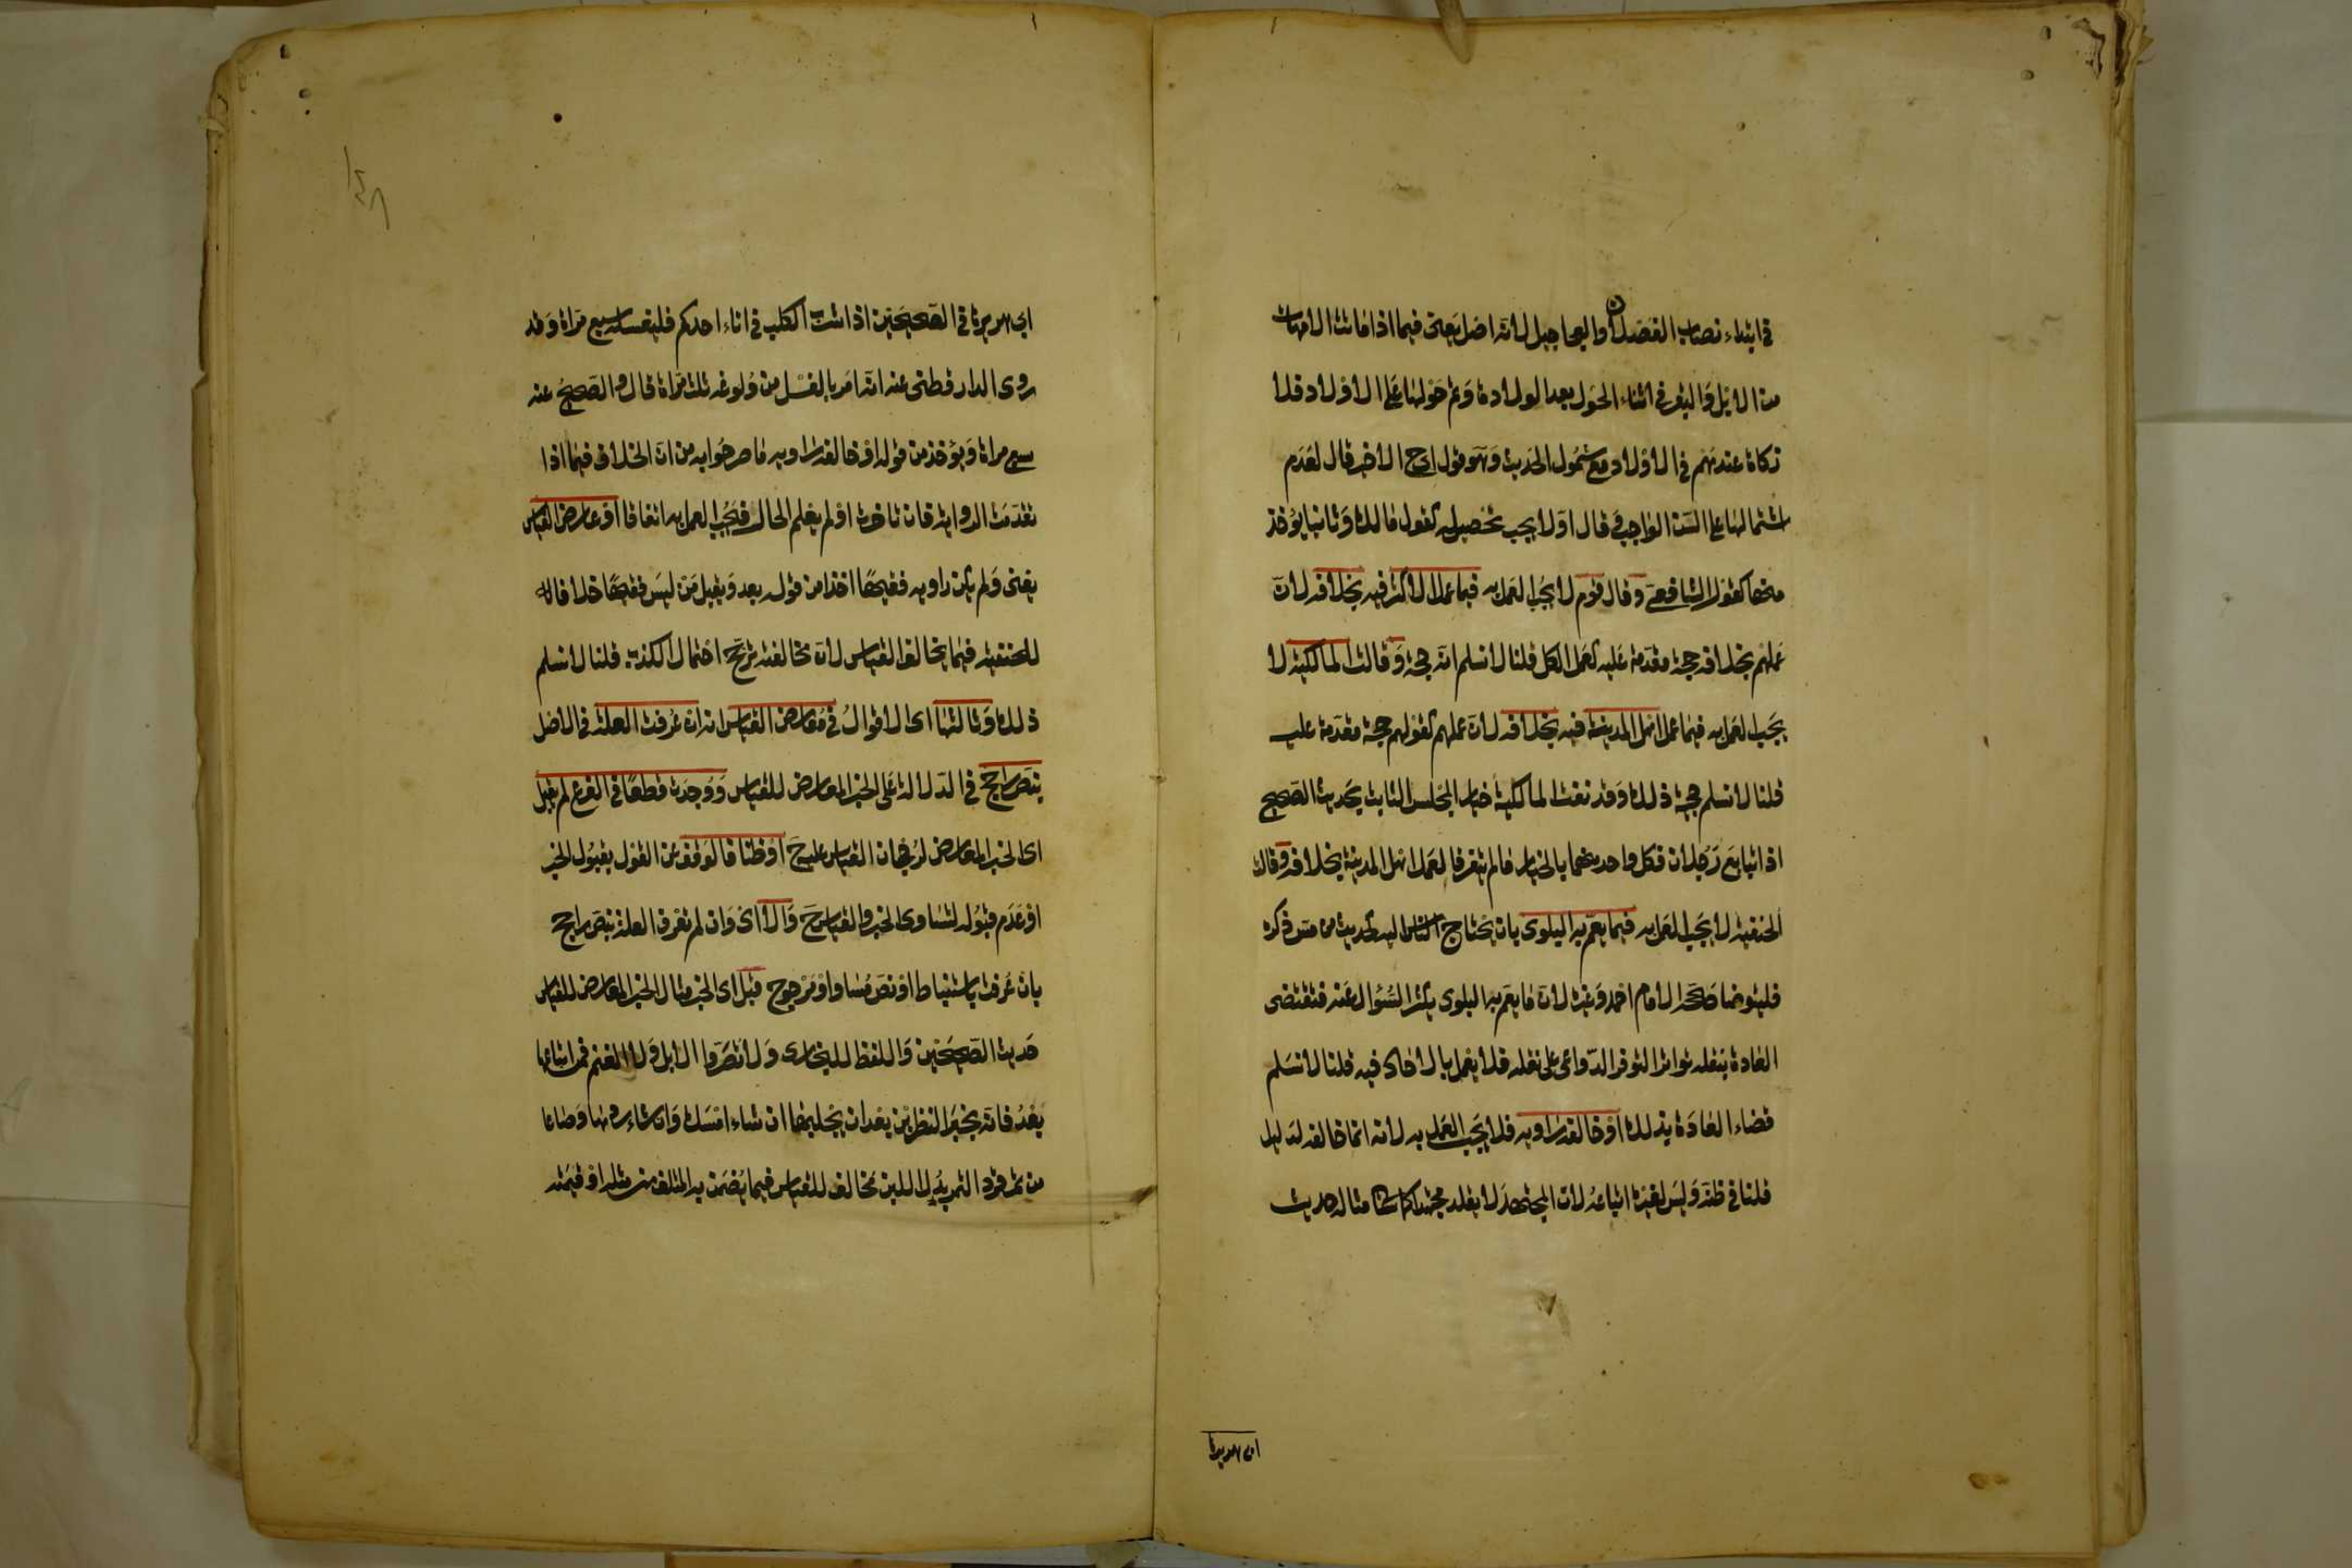 في ابتداء نصاب الفصلان والعجاجيل لانه اصل يعنى فيما اذا ماتت الامهات
من الابل والبقر في اثناء الحول بعد الولادة وتم حولها على الاولاد فلا
زكاة عندهم في الاولاد مع شمول الحديث وهو قول اي ح الاخير قال لعدم
اشتمالها على السن الواجب وقال اولا يجب تحصيله كقول مالك وثانيا يؤخذ
منها كقول الشافعى وقال قوم لا يجب العمل به فيما عمل الاكثر فيه بخلافه لان
عملهم بخلافه حجة مقدمة عليه كعمل الكل قلنا لا نسلم انه حجة وقالت المالكية لا
يجب العمل به فيما عمل اهل المدينة فيه بخلافه لان عملهم كقولهم حجة مقدمة عليه
قلنا لا نسلم حجية ذلك وقد نفت المالكية خيار المجلس الثابت بحديث الصحيح
اذا تبايع رجلان فكل واحد منهما بالخيار مالم يتفرقا لعمل اهل المدينة بخلافه وقالت
الحنفية لا يجب العمل به فيما يعم به البلوى بان يحتاج الناس اليه كحديث من مس ذكره
فليتوضا صححه الامام احمد وغيره لان ما يعم به البلوى يكثر السؤال عنه فتقتضى
العادة بنقله تواترا لتوفر الدواعى على نقله فلا يعمل بالاحاد فيه قلنا لا نسلم
قضاء العادة بذلك او خالفه راويه فلا يجب العمل به لانه انما خالفه لدليل
قلنا في ظنه وليس لغيره اتباعه لان المجتهد لا يقلد مجتهدا كما سياتى مثاله حديث
ابى هريرة
ابي هريرة في الصحيحين اذا شرب الكلب في اناء احدكم فليغسله سبع مراة وقد
روى الدارقطنى عنه انه امر بالغسل من ولوغه ثلث مراة قال والصحيح عنه
سبع مراة ويؤخذ من قوله او خالفه راويه ما صرحوا به من ان الخلاف فيما اذا
تقدمت الرواية فان تاخرت او لم يعلم الحال فيجب العمل به اتفاقا او عارض القياس
يعنى ولم يكن راويه فقيها اخذا من قوله بعد ويقبل من ليس فقيها خلافا
للحنفية فيما يخالف القياس لان مخالفته ترجح احتمال الكذب قلنا لا نسلم
ذلك وثالثها اى الاقوال في معارض القياس انه ان عرفت العلة في الاصل
بنص راجح في الدلالة على الخبر المعارض للقياس ووجدت قطعا في الفرع لم يقبل
اى الخبر المعارض لرجحان القياس عليه ح او ظنا فالوقف عن القول بقبول الخبر
او عدم قبوله لتساوى الخبر والقياس ح والا اى وان لم تعرف العلة بنص راجح
بان عرفت باستنباط او نص مساو او مرجوح قبل اى الخبر مثال الخبر المعارض للقياس
حديث الصحيحين واللفظ للبخارى ولا تصروا الابل ولا الغنم فمن ابتاعها
بعد فانه بخير النظرين بعد ان يحلبها ان شاء امسك وان شاء ردها وصاعا
من تمر فرد التمر بدل اللبن مخالف للقياس فيما يضمن به المتلف من مثله او قيمته